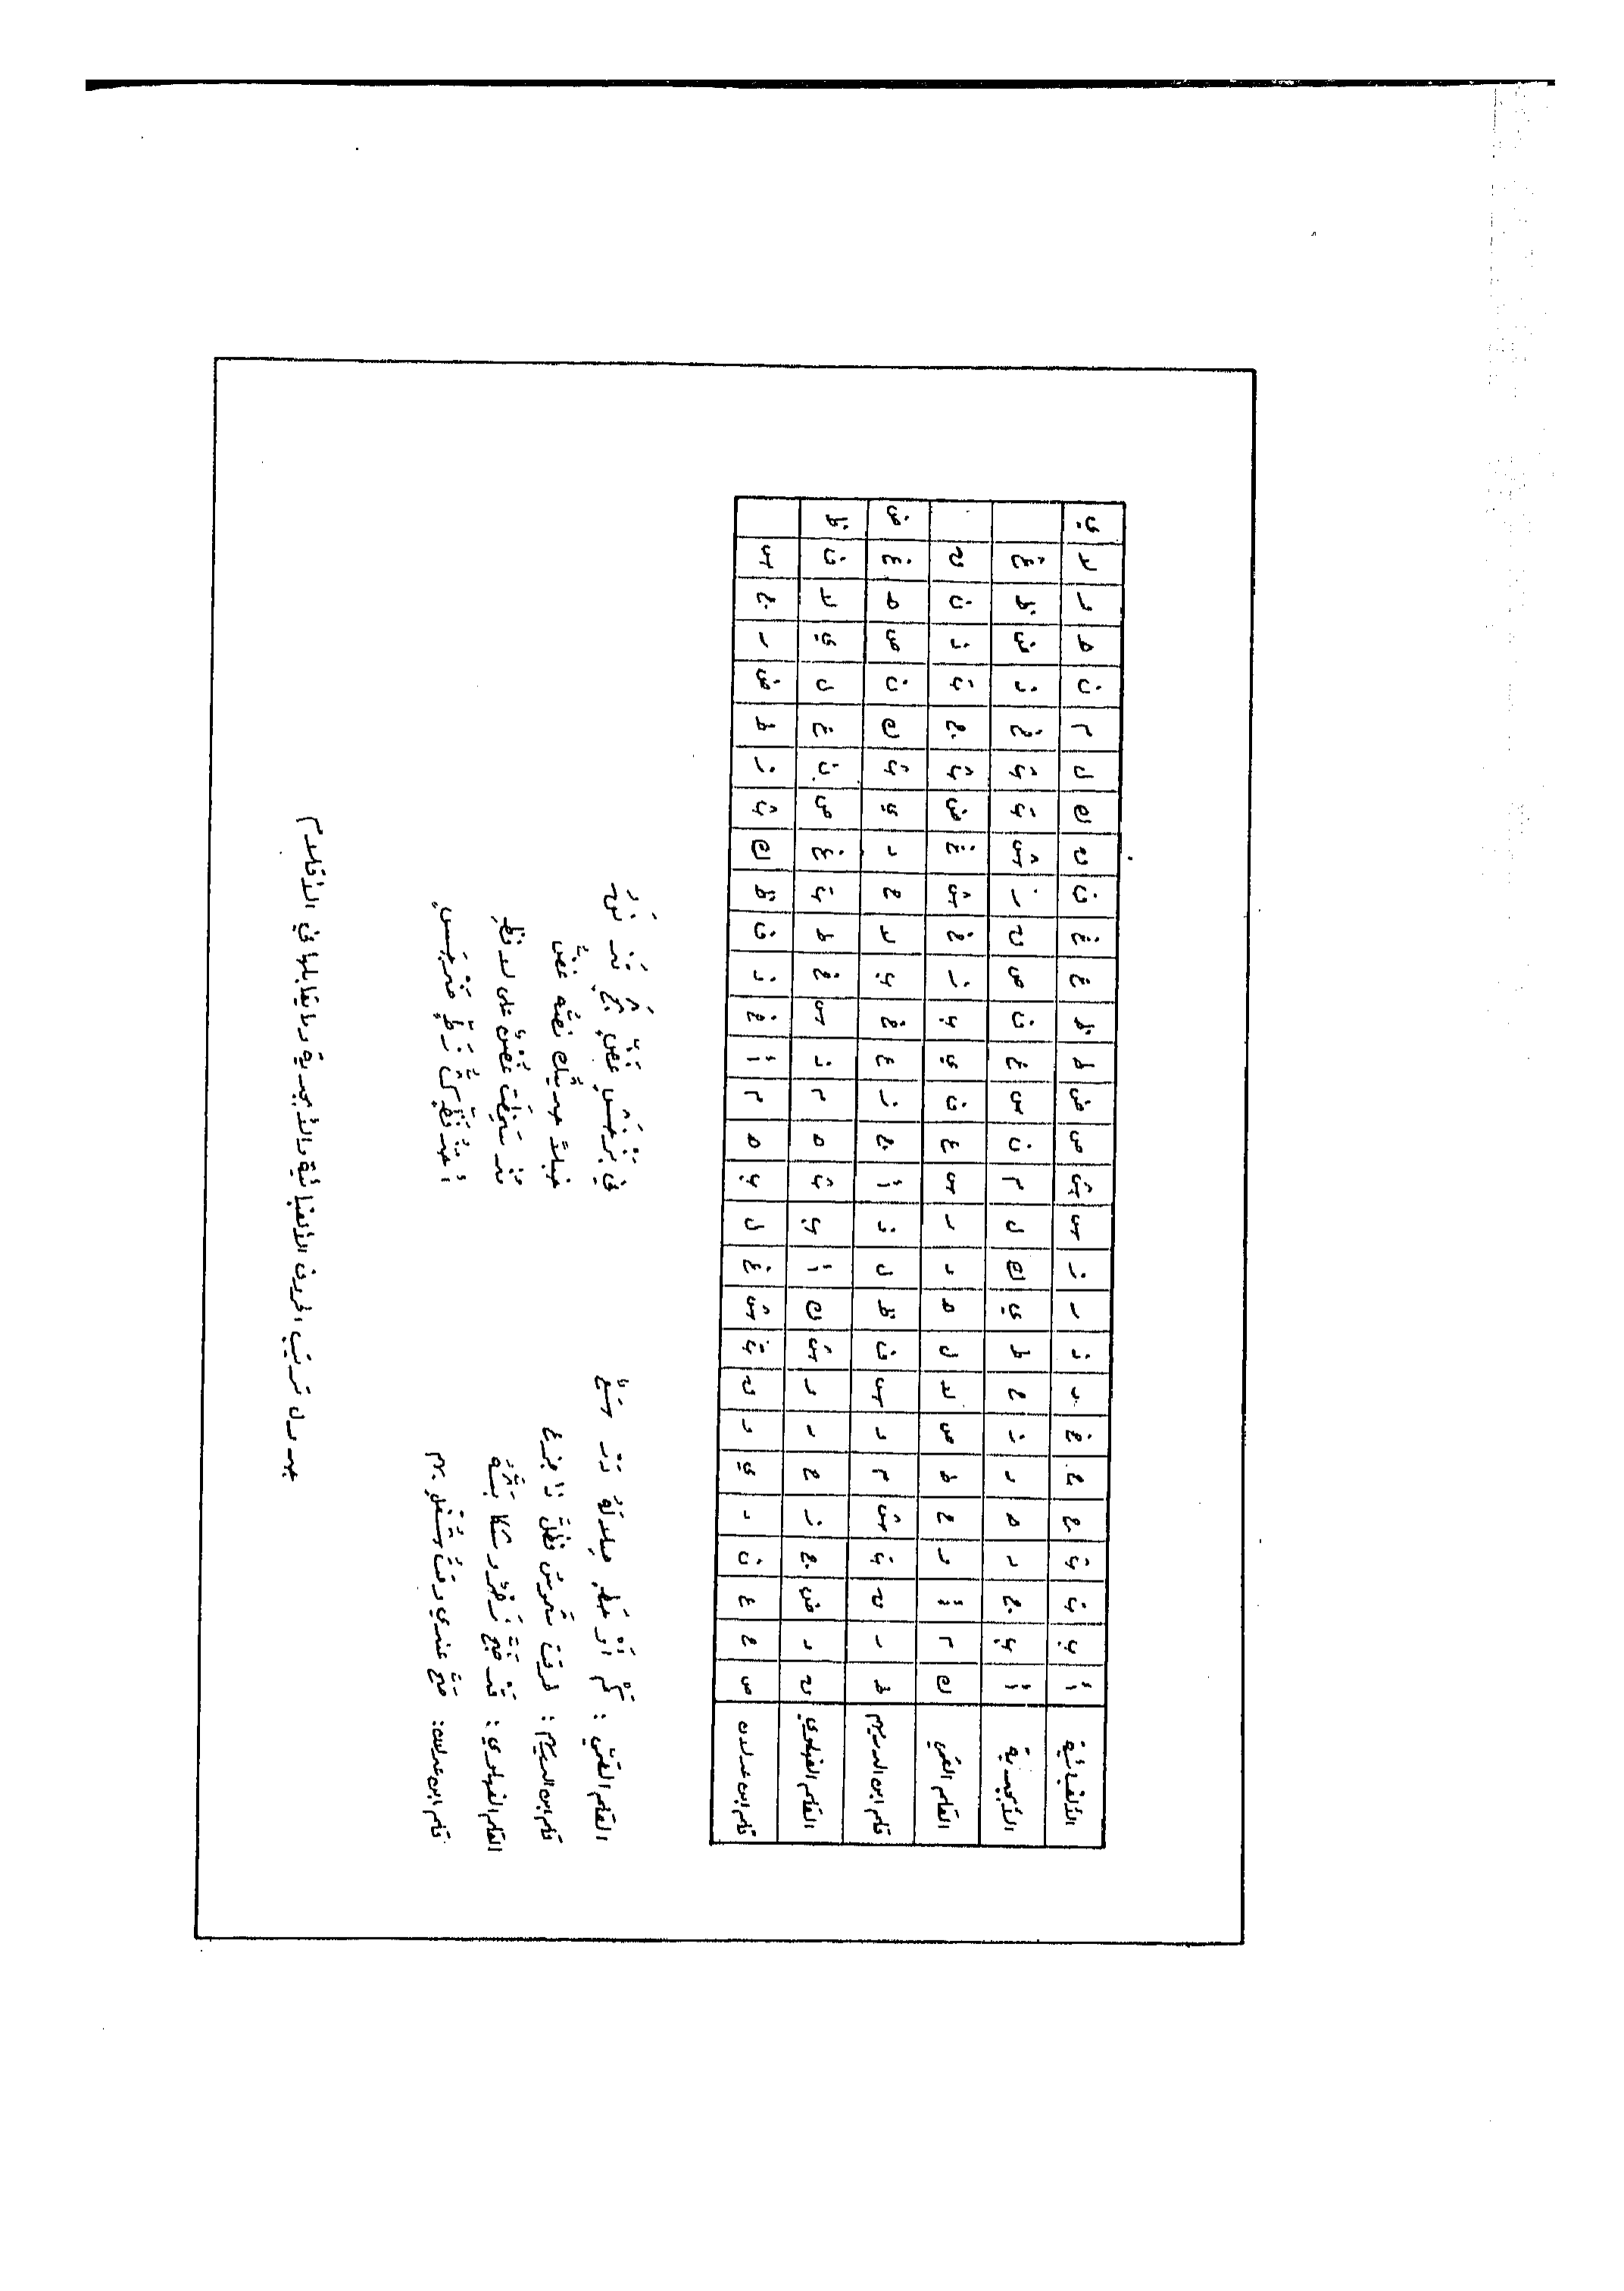 الألفبائية أ ب ت ث ج ح خ د ذ ر ز س ش ص ض ط ظ ع غ ف ق ك ل م ن ه و لا ي
الأبجدية أ ب ج د ه و ز ح ط ي ك ل م ن س ع ف ص ق ر ش ت ث خ ذ ض ظ غ
القلم القمي ك م أ و ح ط ص لا ل ه د ر س ع ف ي ب ز خ ش غ ض ث ج ت ذ ن ق
قلم ابن الدريهم ط ر ق ت ش م و س ف ظ ل ذ أ ج ز ع خ ب لا ح د ي ث ك ن ص ه غ ض
القلم الفهلوي ق د ض ج ز ح ر و ش ك أ ب ث ه م ذ س خ ط ت غ ص ن ع ل ي لا ف ظ
قلم ابن عدلان ص ح ع ن د ي و ق ت ش غ ل ب ه م أ خ ذ ف ظ ك ث ز ط ض ر ج س
القلم القمي :
قلم ابن الدريهم : طرقت شموس فظل ذا جزع خبلا حديثك نصه غض
القلم الفهلوي : قد ضج زحر وشكا بثه مذ سخطت غصن على لافظ
قلم ابن عدلان : صح عندي وقت شغل بهم
جدول ترتيب الحروف الألفبائية والأبجدية وما يقابلها في الأقلام